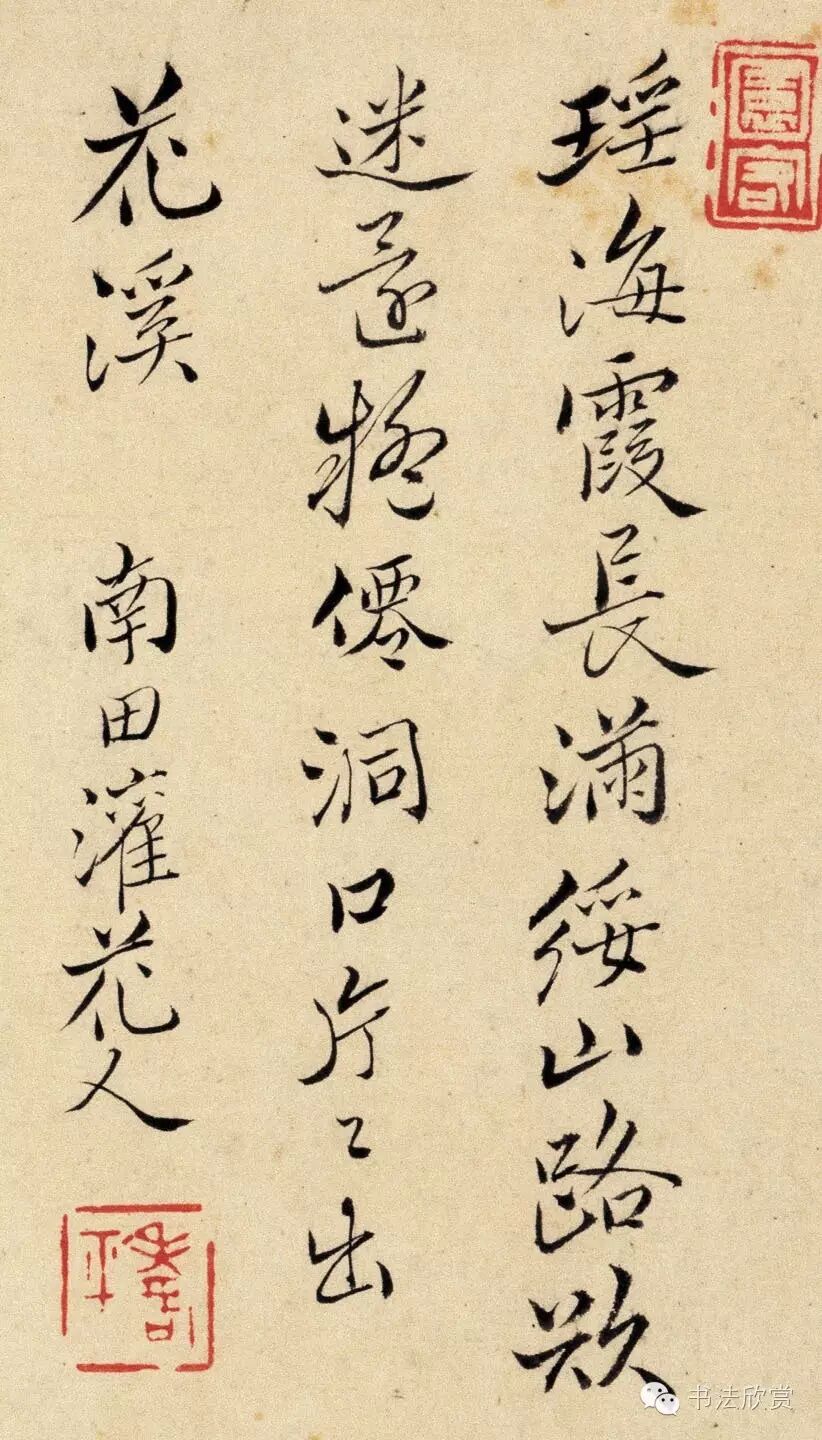 瑶海霞長滿綏山路欲
迷還疑僊洞口片〻出
花溪 南田灌花人
书法欣赏